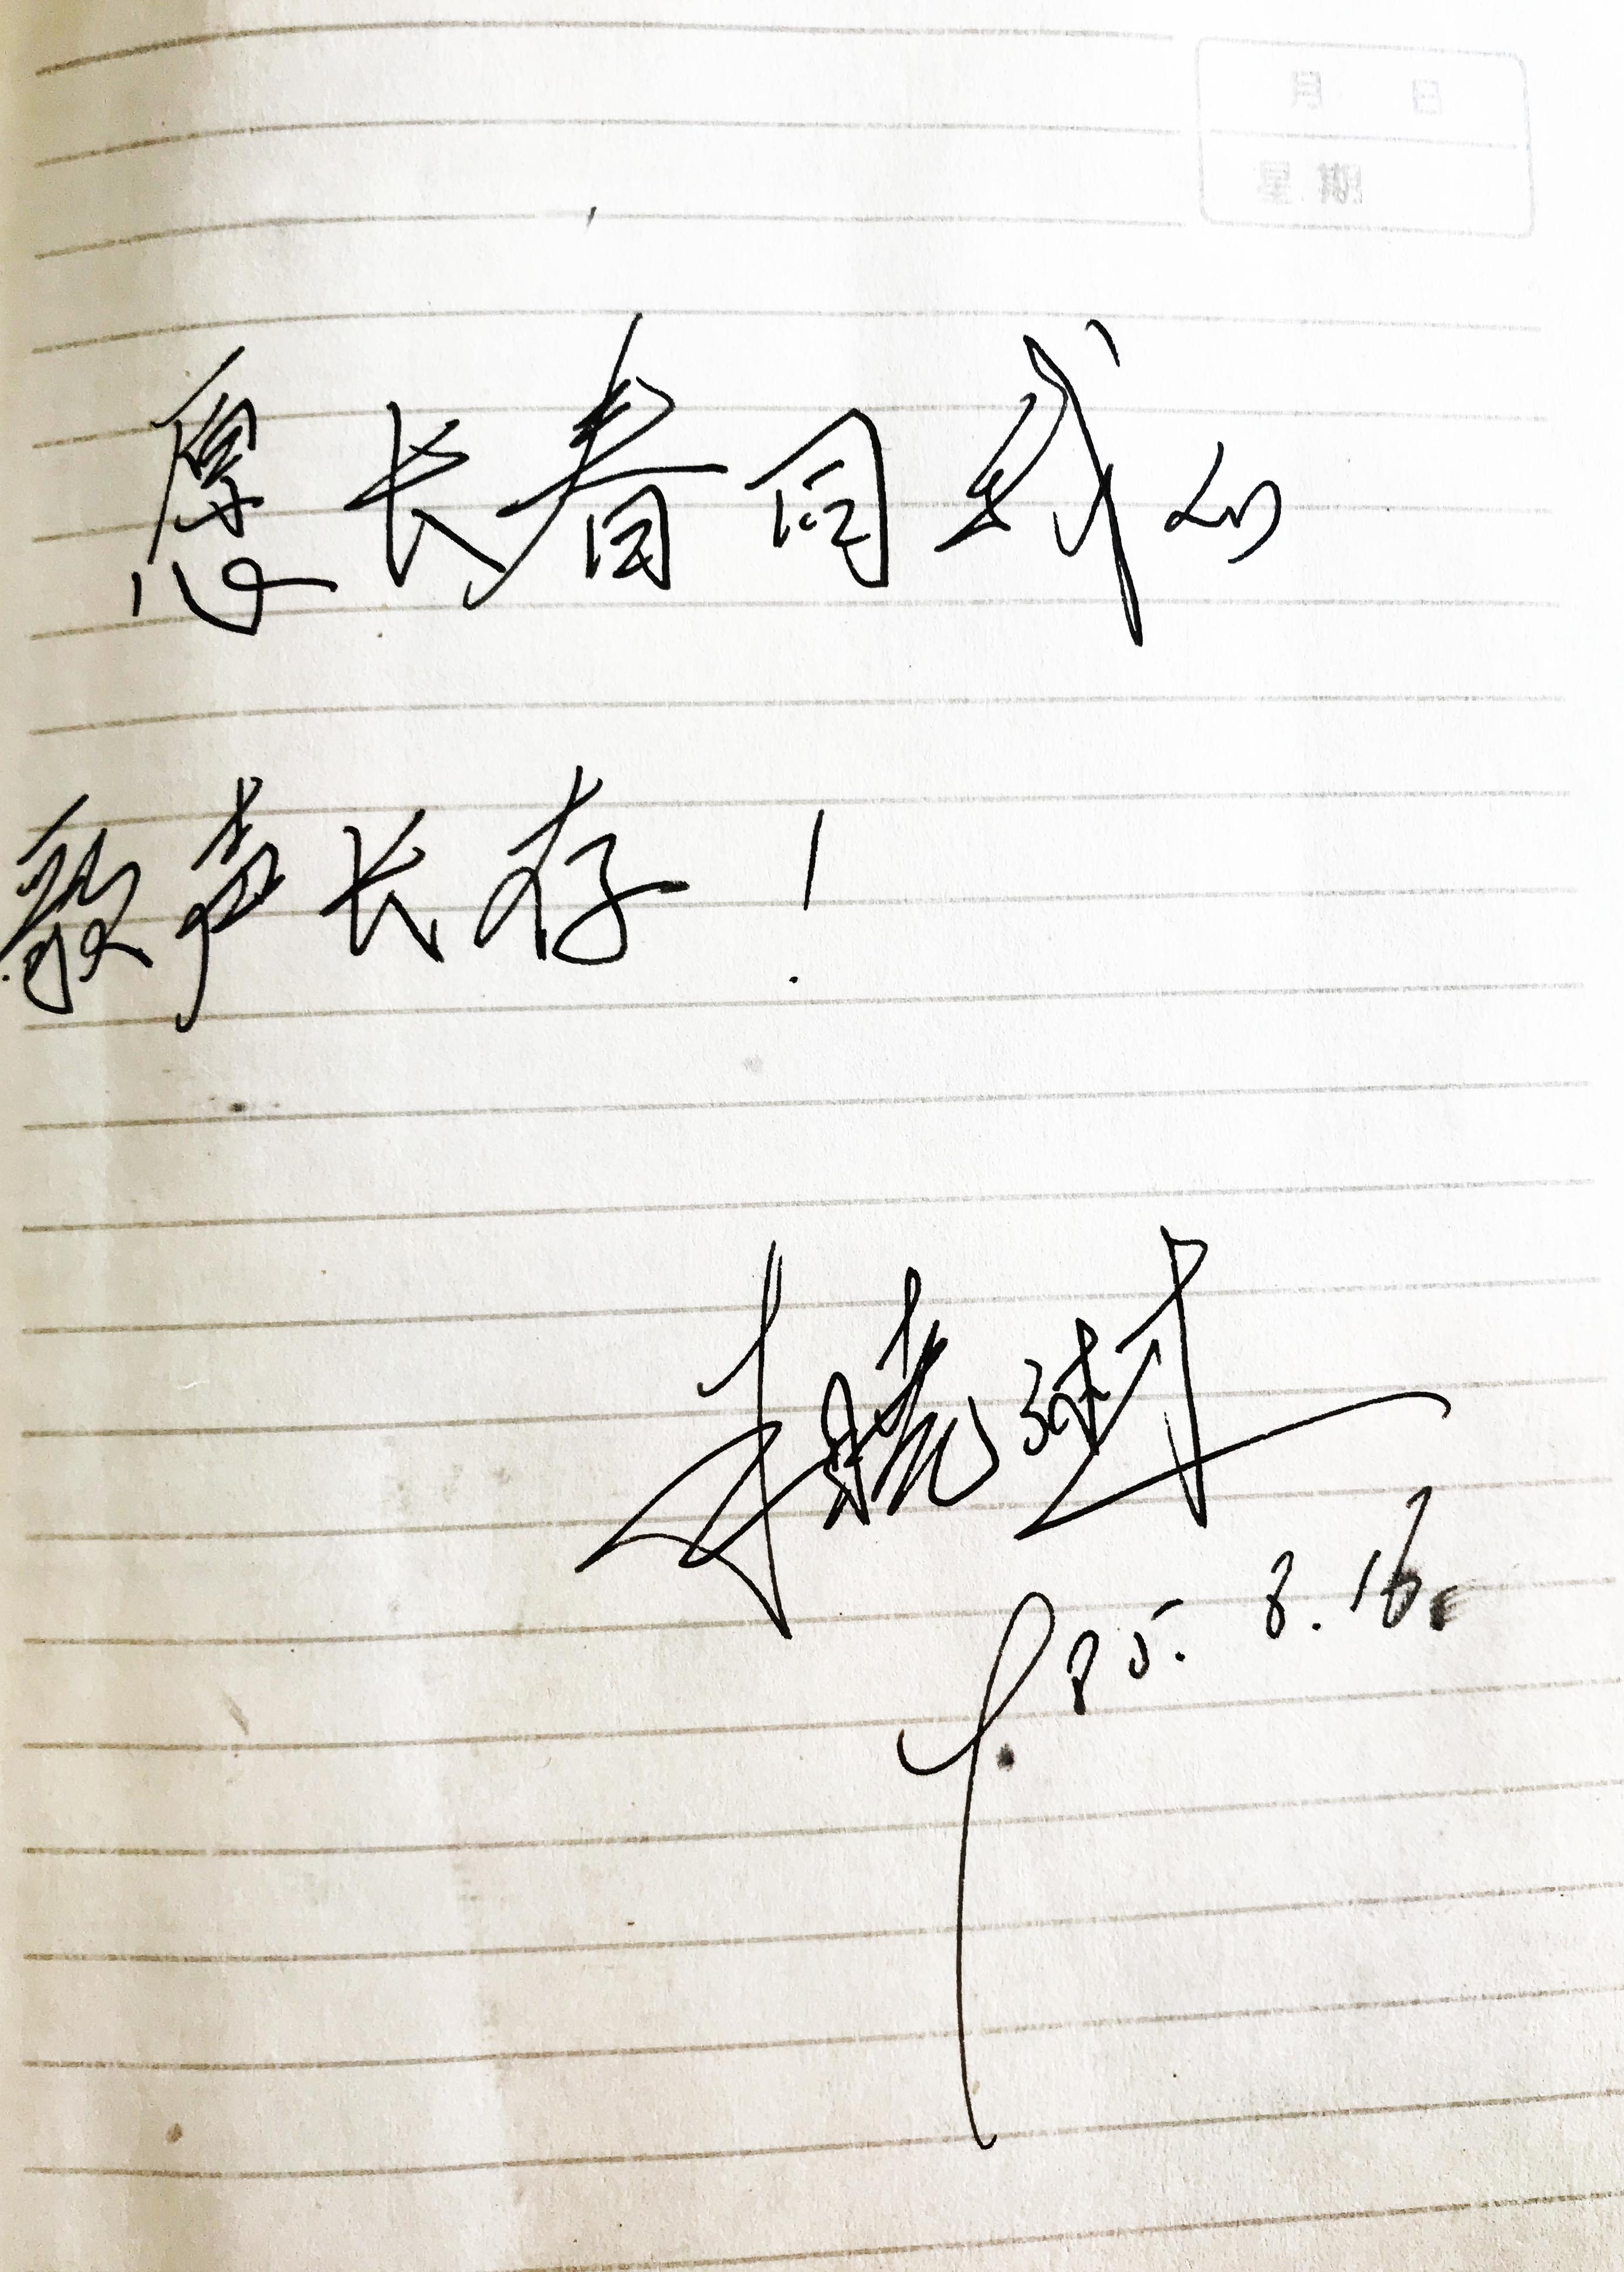 月 日
星期
愿长春同我的
歌声长存!
李晓
85. 8. 16.